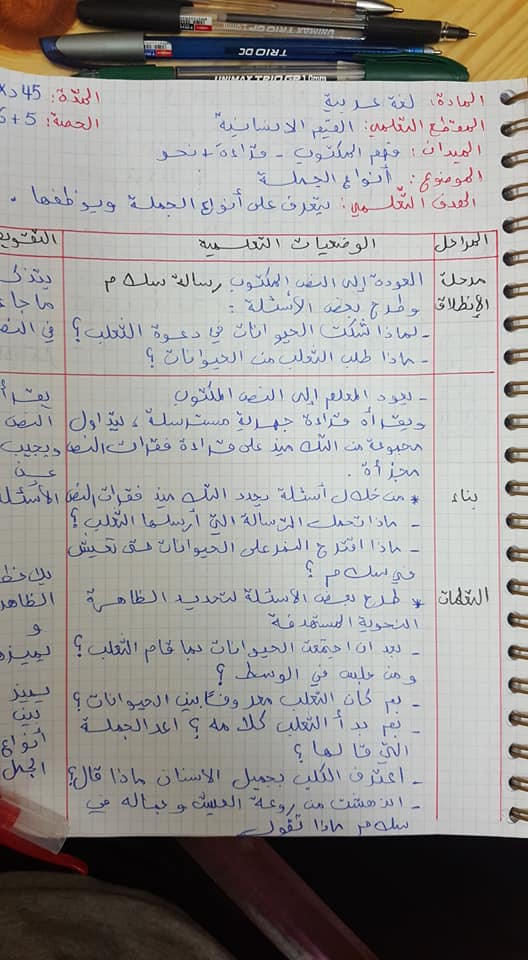 UNIMAX TRIO DC
TRIO DC
UNIMAX TRIO
المادة: لغة عربية
المدّة: 45 د
المقطع التعلمي: القيم الانسانية
الحصة: 5+
الميدان: فهم المكتوب - قراءة + نحو
الموضوع: أنواع الجملة
الهدف التعلّمي: يتعرف على أنواع الجملة ويوظفها.
المراحل
الوضعيات التعلمية
التقويم
مرحلة الإنطلاق
العودة إلى النص المكتوب رسالة سلام
وطرح بعض الأسئلة:
- لماذا شكت الحيوانات في دعوة الثعلب؟
- ماذا طلب الثعلب من الحيوانات؟
يتذكر
ما جاء
في النص
بناء
التعلمات
- يعود المعلم إلى النص المكتوب
ويقرأه قراءة جهرية مسترسلة، يتداول
مجموعة من التلاميذ على قراءة فقرات النص
مجزأة.
* من خلال أسئلة يحدد التلاميذ فقرات النص
- ماذا تحمل الرسالة التي أرسلها الثعلب؟
- ماذا اقترح النمر على الحيوانات حتى تعيش
في سلام؟
* طرح بعض الأسئلة لتحديد الظاهرة
النحوية المستهدفة
- بعد ان اجتمعت الحيوانات بما قام الثعلب؟
ومن جلس في الوسط؟
- بم كان الثعلب معروفا بين الحيوانات؟
- بم بدأ الثعلب كلامه؟ اعد الجملة
التي قالها؟
- اعترف الكلب بجميل الأسنان ماذا قال؟
- اندهشت من روعة العيش وجماله في
سلام ماذا تقول
يقرأ
النص
ويجيب
عن
الأسئلة
يلاحظ
الظاهرة
و
يميزها
يميز
بين
أنواع
الجمل